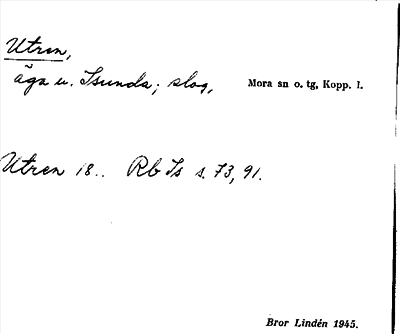 Utren,
äga u. Isunda; slog, Mora sn o. tg, Kopp. l.
Utren 18.. Rb Is s. 73, 91.
Bror Lindén 1945.